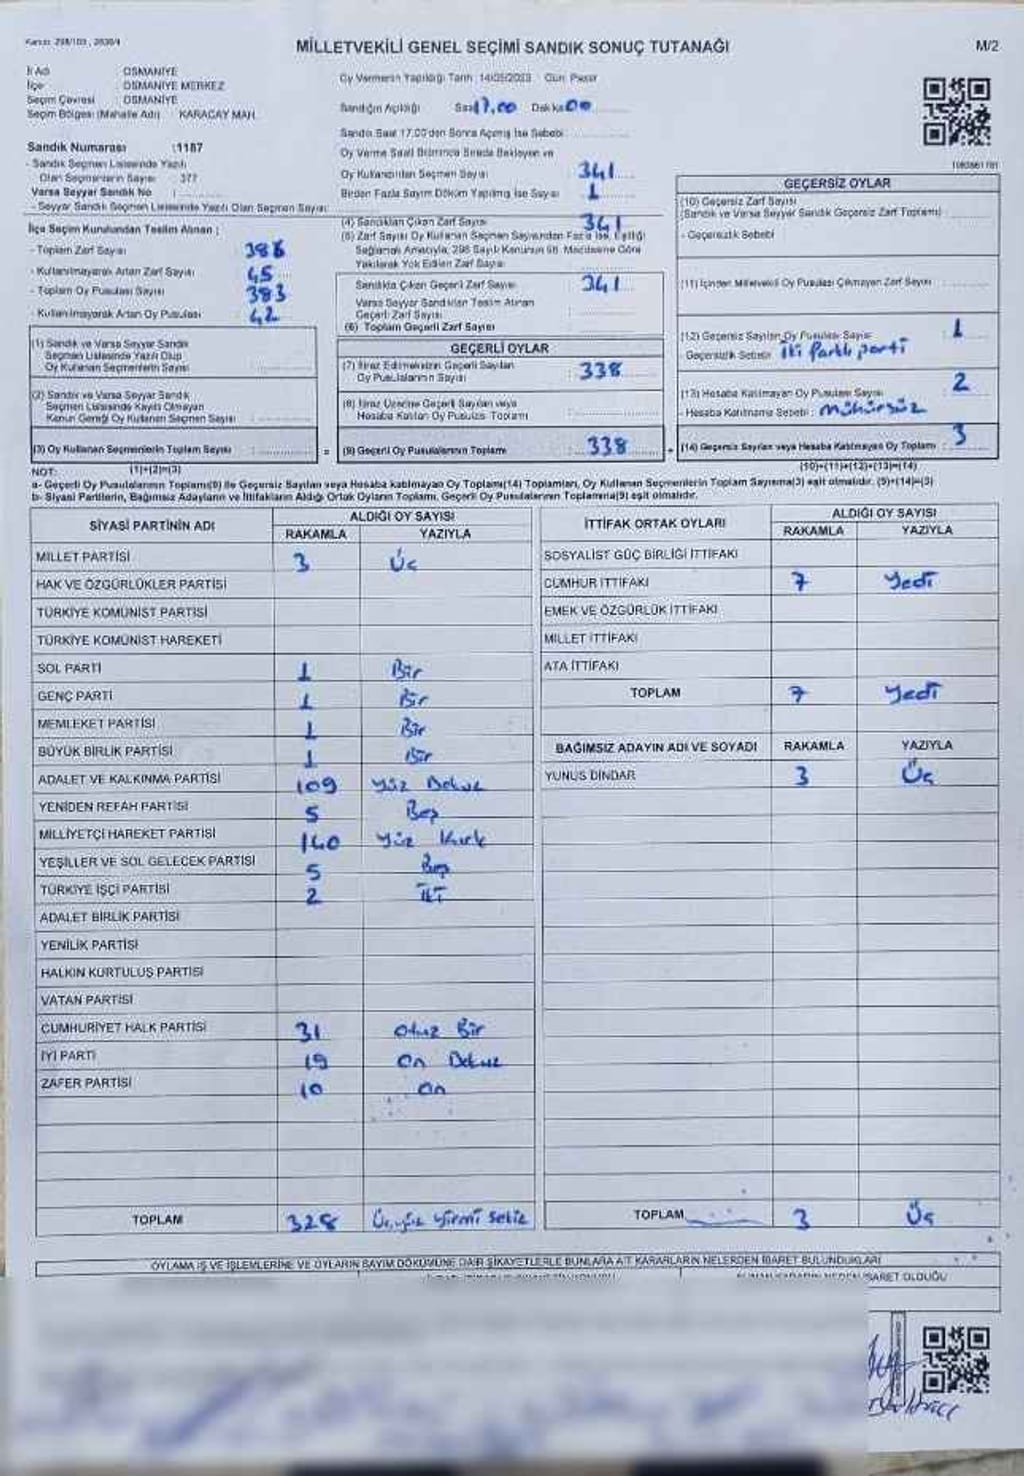 Kanun: 298/103, 2839/4
MİLLETVEKİLİ GENEL SEÇİMİ SANDIK SONUÇ TUTANAĞI
M/2
İl Adı : OSMANİYE
İlçe : OSMANİYE MERKEZ
Seçim Çevresi : OSMANİYE
Seçim Bölgesi (Mahalle Adı) : KARAÇAY MAH.
Sandık Numarası :1187
- Sandık Seçmen Listesinde Yazılı
Olan Seçmenlerin Sayısı : 377
Varsa Seyyar Sandık No :
- Seyyar Sandık Seçmen Listesinde Yazılı Olan Seçmen Sayısı:
İlçe Seçim Kurulundan Teslim Alınan ;
- Toplam Zarf Sayısı : 386
- Kullanılmayarak Artan Zarf Sayısı : 45
- Toplam Oy Pusulası Sayısı : 383
- Kullanılmayarak Artan Oy Pusulası : 42
(1) Sandık ve Varsa Seyyar Sandık
Seçmen Listesinde Yazılı Olup
Oy Kullanan Seçmenlerin Sayısı :
(2) Sandık ve Varsa Seyyar Sandık
Seçmen Listesinde Kayıtlı Olmayan
Kanun Gereği Oy Kullanan Seçmen Sayısı :
(3) Oy Kullanan Seçmenlerin Toplam Sayısı :
(1)+(2)=(3)
Oy Vermenin Yapıldığı Tarih : 14/05/2023 Gün: Pazar
Sandığın Açıldığı Saat 17,00 Dakika 00
Sandık Saat 17.00'den Sonra Açılmış İse Sebebi :
Oy Verme Saati Bitiminde Sırada Bekleyen ve
Oy Kullandırılan Seçmen Sayısı : 341
Birden Fazla Sayım Döküm Yapılmış İse Sayısı : 1
(4) Sandıktan Çıkan Zarf Sayısı : 341
(5) Zarf Sayısı Oy Kullanan Seçmen Sayısından Fazla İse, Eşitliği
Sağlamak Amacıyla, 298 Sayılı Kanunun 98. Maddesine Göre
Yakılarak Yok Edilen Zarf Sayısı :
Sandıkta Çıkan Geçerli Zarf Sayısı : 341
Varsa Seyyar Sandıktan Teslim Alınan
Geçerli Zarf Sayısı :
(6) Toplam Geçerli Zarf Sayısı :
GEÇERLİ OYLAR
(7) İtiraz Edilmeksizin Geçerli Sayılan
Oy Pusulalarının Sayısı : 338
(8) İtiraz Üzerine Geçerli Sayılan veya
Hesaba Katılan Oy Pusulası Toplamı :
= (9) Geçerli Oy Pusulalarının Toplamı : 338 +
GEÇERSİZ OYLAR
(10) Geçersiz Zarf Sayısı
(Sandık ve Varsa Seyyar Sandık Geçersiz Zarf Toplamı) :
- Geçersizlik Sebebi :
(11) İçinden Milletvekili Oy Pusulası Çıkmayan Zarf Sayısı :
(12) Geçersiz Sayılan Oy Pusulası Sayısı : 1
Geçersizlik Sebebi : iki farklı parti
(13) Hesaba Katılmayan Oy Pusulası Sayısı : 2
- Hesaba Katılmama Sebebi : Mühürsüz
(14) Geçersiz Sayılan veya Hesaba Katılmayan Oy Toplamı : 3
(10)+(11)+(12)+(13)=(14)
NOT:
a- Geçerli Oy Pusulalarının Toplamı(9) ile Geçersiz Sayılan veya Hesaba katılmayan Oy Toplamı(14) Toplamları, Oy Kullanan Seçmenlerin Toplam Sayısına(3) eşit olmalıdır. (9)+(14)=(3)
b- Siyasi Partilerin, Bağımsız Adayların ve İttifakların Aldığı Ortak Oyların Toplamı, Geçerli Oy Pusulalarının Toplamına(9) eşit olmalıdır.
SİYASİ PARTİNİN ADI ALDIĞI OY SAYISI
RAKAMLA YAZIYLA
MİLLET PARTİSİ 3 Üç
HAK VE ÖZGÜRLÜKLER PARTİSİ
TÜRKİYE KOMÜNİST PARTİSİ
TÜRKİYE KOMÜNİST HAREKETİ
SOL PARTİ 1 Bir
GENÇ PARTİ 1 Bir
MEMLEKET PARTİSİ 1 Bir
BÜYÜK BİRLİK PARTİSİ 1 Bir
ADALET VE KALKINMA PARTİSİ 109 Yüz Dokuz
YENİDEN REFAH PARTİSİ 5 Beş
MİLLİYETÇİ HAREKET PARTİSİ 140 Yüz Kırk
YEŞİLLER VE SOL GELECEK PARTİSİ 5 Beş
TÜRKİYE İŞÇİ PARTİSİ 2 İki
ADALET BİRLİK PARTİSİ
YENİLİK PARTİSİ
HALKIN KURTULUŞ PARTİSİ
VATAN PARTİSİ
CUMHURİYET HALK PARTİSİ 31 Otuz Bir
İYİ PARTİ 19 On Dokuz
ZAFER PARTİSİ 10 On
TOPLAM 328 Üç yüz yirmi sekiz
İTTİFAK ORTAK OYLARI ALDIĞI OY SAYISI
RAKAMLA YAZIYLA
SOSYALİST GÜÇ BİRLİĞİ İTTİFAKI
CUMHUR İTTİFAKI 7 Yedi
EMEK VE ÖZGÜRLÜK İTTİFAKI
MİLLET İTTİFAKI
ATA İTTİFAKI
TOPLAM 7 Yedi
BAĞIMSIZ ADAYIN ADI VE SOYADI RAKAMLA YAZIYLA
YUNUS DİNDAR 3 Üç
TOPLAM 3 Üç
OYLAMA İŞ VE İŞLEMLERİNE VE OYLARIN SAYIM DÖKÜMÜNE DAİR ŞİKAYETLERLE BUNLARA AİT KARARLARIN NELERDEN İBARET BULUNDUKLARI